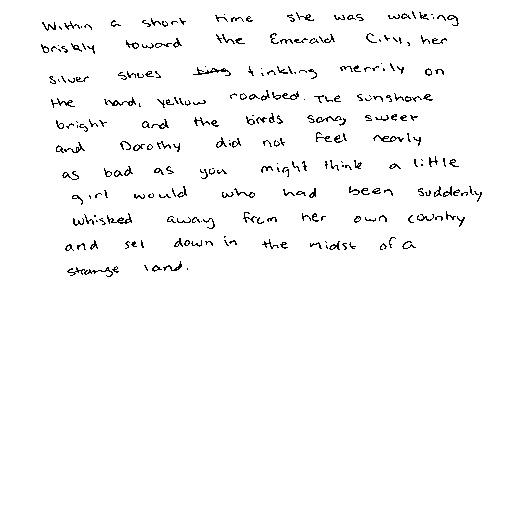 Within a short time she was walking
briskly toward the Emerald City, her
silver shoes tinkling merrily on
the hard, yellow roadbed. The sunshone
bright and the birds sang sweet
and Dorothy did not feel nearly
as bad as you might think a little
girl would who had been suddenly
whisked away from her own country
and set down in the midst of a
strange land.